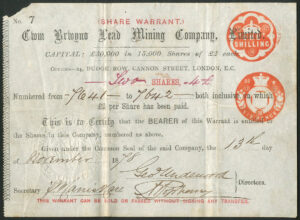 No. 7
(SHARE WARRANT.)
Cwm Brwyno Lead Mining Company, Limited.
CAPITAL: £30,000 in 15,000 Shares of £2 each.
OFFICES—24, BUDGE ROW, CANNON STREET, LONDON, E.C.
Two SHARES, No
Numbered from 7641 to 7642 both inclusive, on which
£2 per Share has been paid.
This is to Certify that the BEARER of this Warrant is entitled to
the Shares in this Company, numbered as above.
Given under the Common Seal of the said Company, the 13th day
of November 1878
Geo Underwood
Secretary
Directors.
THIS WARRANT CAN BE SOLD OR PASSED WITHOUT SIGNING ANY TRANSFER.
SHILLING